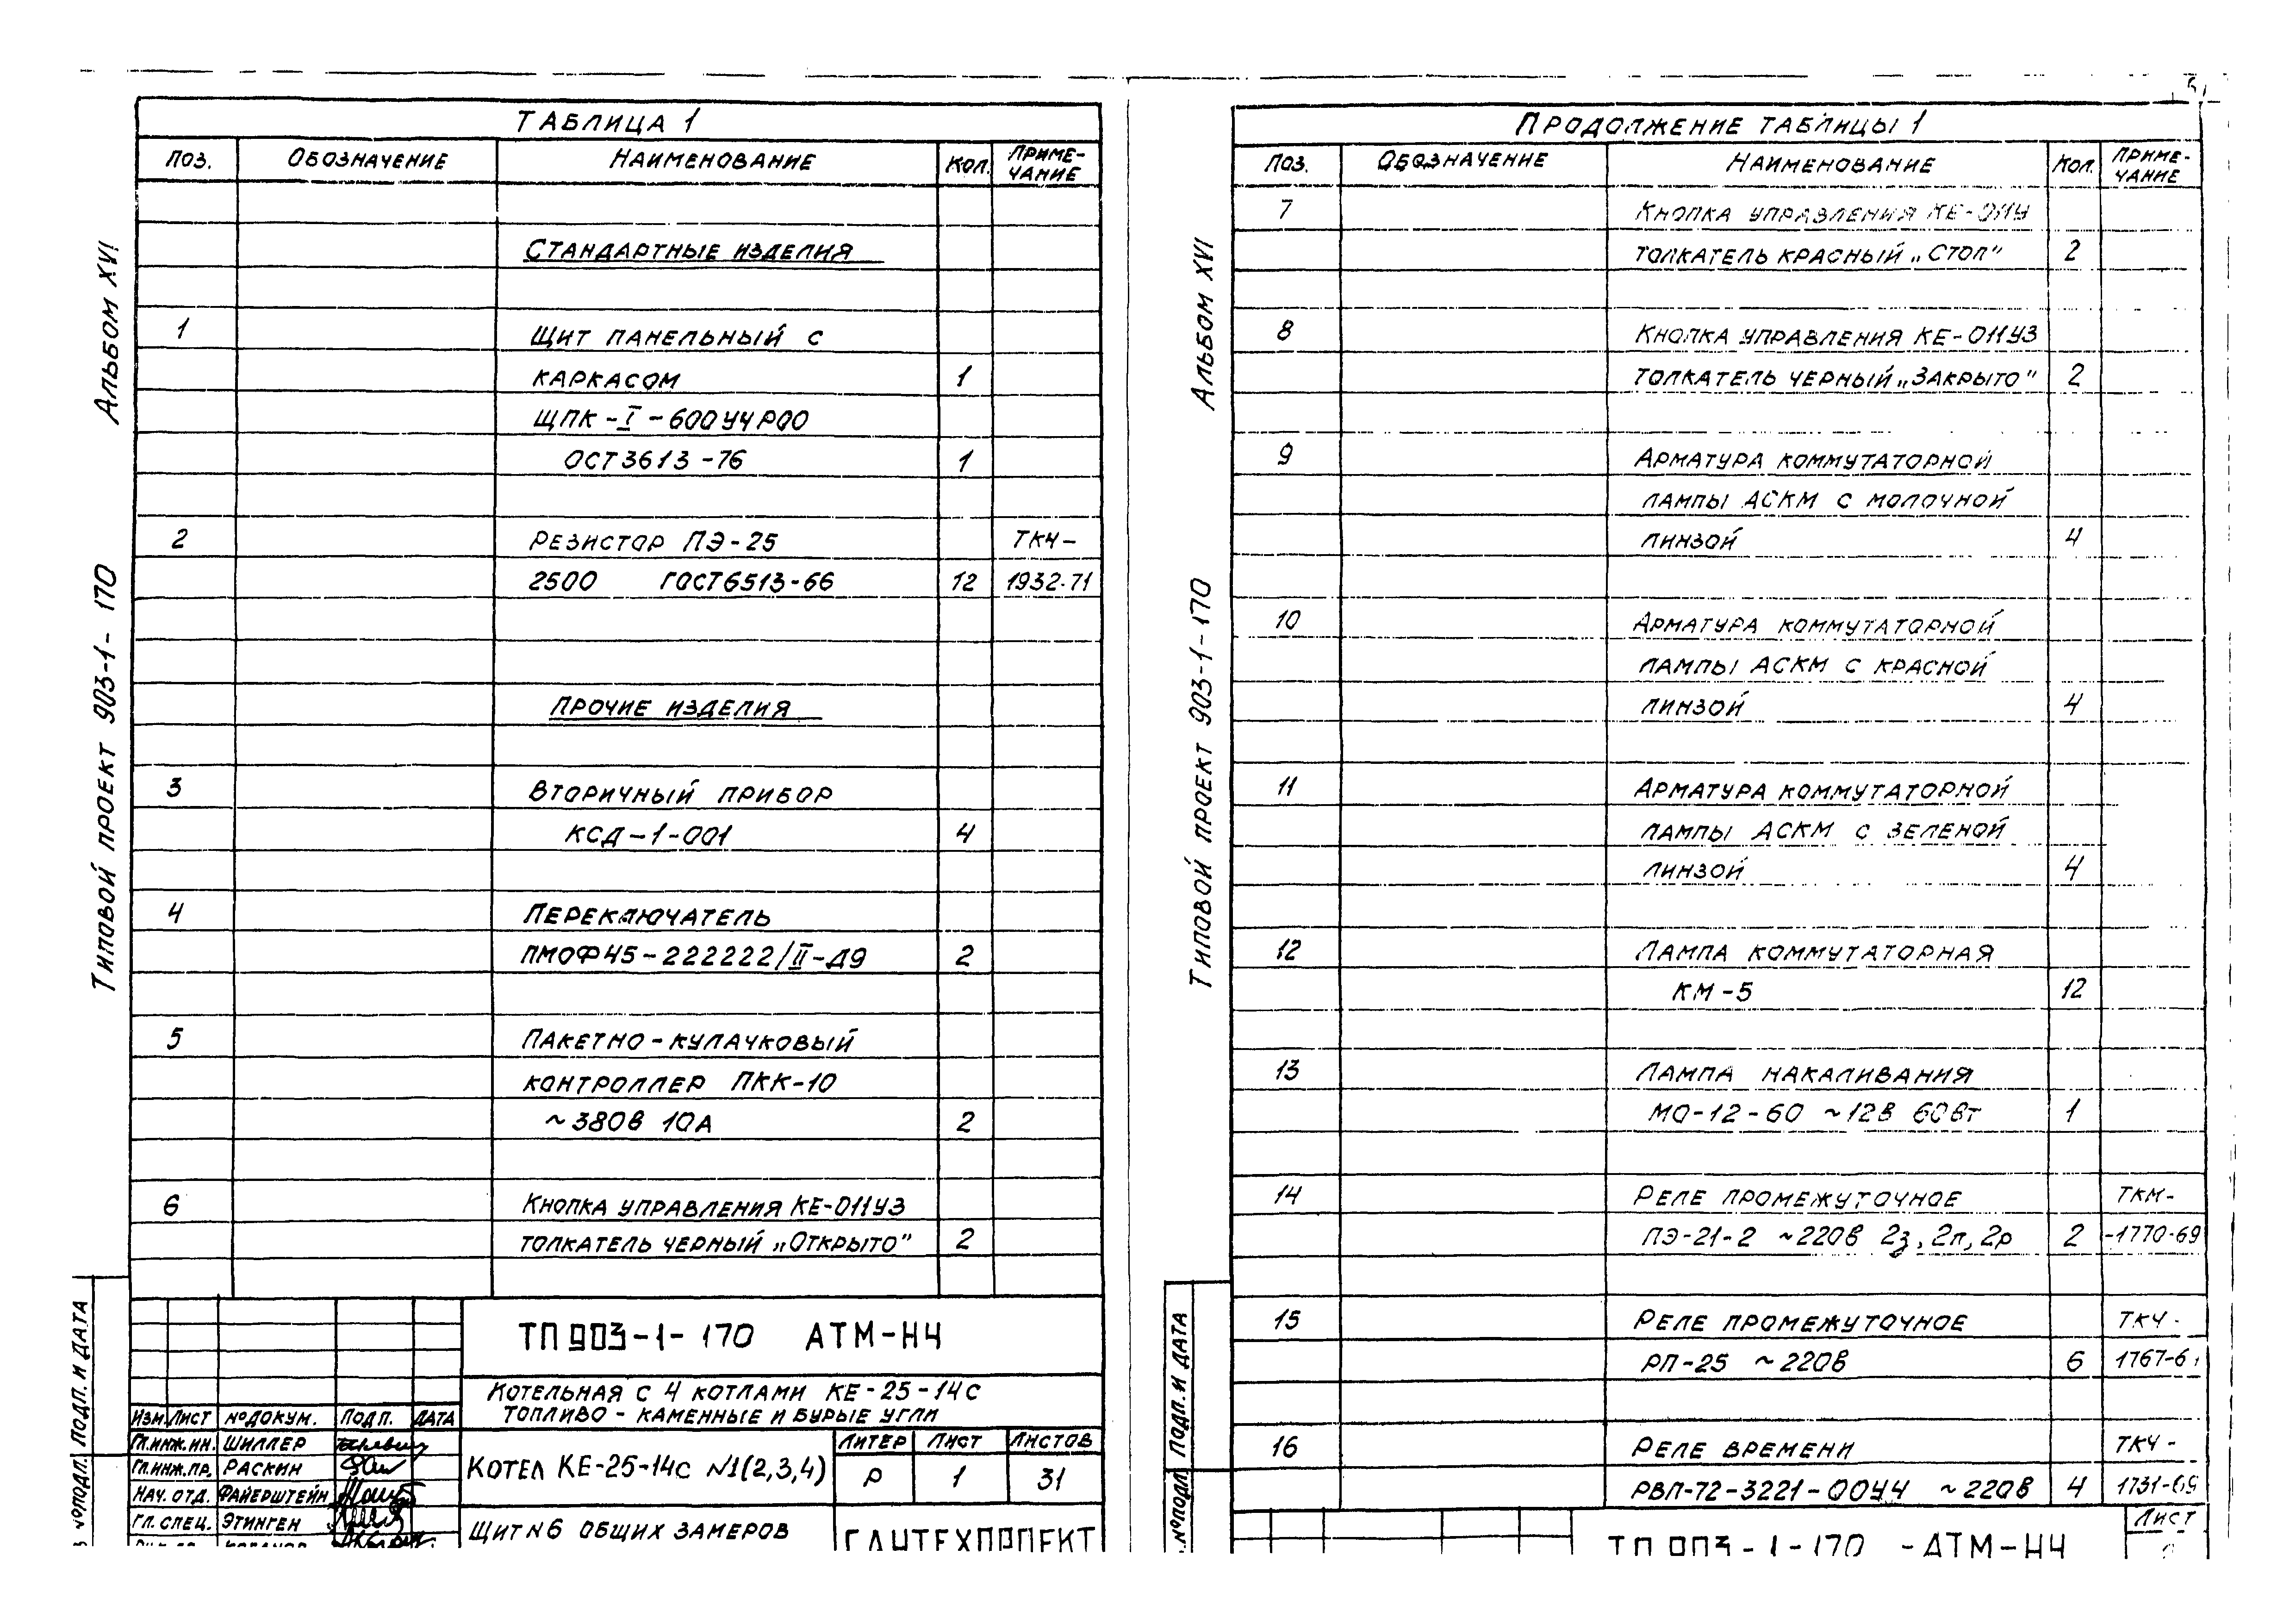 ТАБЛИЦА 1
ПОЗ. ОБОЗНАЧЕНИЕ НАИМЕНОВАНИЕ КОЛ. ПРИМЕ-
ЧАНИЕ
СТАНДАРТНЫЕ ИЗДЕЛИЯ
1 ЩИТ ПАНЕЛЬНЫЙ С
КАРКАСОМ 1
ЩПК-I-600У4Р00
ОСТ3613-76 1
2 РЕЗИСТОР ПЭ-25 ТКЧ-
2500 ГОСТ6513-66 12 1932-71
ПРОЧИЕ ИЗДЕЛИЯ
3 ВТОРИЧНЫЙ ПРИБОР
КСД-1-001 4
4 ПЕРЕКЛЮЧАТЕЛЬ
ПМОФ45-222222/II-Д9 2
5 ПАКЕТНО-КУЛАЧКОВЫЙ
КОНТРОЛЛЕР ПКК-10
~380В 10А 2
6 КНОПКА УПРАВЛЕНИЯ КЕ-011У3
ТОЛКАТЕЛЬ ЧЕРНЫЙ „ОТКРЫТО" 2
АЛЬБОМ XVI
ТИПОВОЙ ПРОЕКТ 903-1-170
ПОДП. И ДАТА
№ПОДЛ.
ТП 903-1-170 АТМ-Н4
КОТЕЛЬНАЯ С 4 КОТЛАМИ КЕ-25-14С
ТОПЛИВО - КАМЕННЫЕ И БУРЫЕ УГЛИ
ИЗМ. ЛИСТ №ДОКУМ. ПОДП. ДАТА
ГЛ.ИНЖ.ИН. ШИЛЛЕР
ГЛ.ИНЖ.ПР. РАСКИН
НАЧ. ОТД. ФАЙЕРШТЕЙН
ГЛ. СПЕЦ. ЭТИНГЕН
КОТЕЛ КЕ-25-14С №1(2,3,4)
ЛИТЕР ЛИСТ ЛИСТОВ
Р 1 31
ЩИТ №6 ОБЩИХ ЗАМЕРОВ
САНТЕХПРОЕКТ
5
ПРОДОЛЖЕНИЕ ТАБЛИЦЫ 1
ПОЗ. ОБОЗНАЧЕНИЕ НАИМЕНОВАНИЕ КОЛ. ПРИМЕ-
ЧАНИЕ
7 КНОПКА УПРАВЛЕНИЯ КЕ-011У
ТОЛКАТЕЛЬ КРАСНЫЙ „СТОП" 2
8 КНОПКА УПРАВЛЕНИЯ КЕ-011У3
ТОЛКАТЕЛЬ ЧЕРНЫЙ „ЗАКРЫТО" 2
9 АРМАТУРА КОММУТАТОРНОЙ
ЛАМПЫ АСКМ С МОЛОЧНОЙ
ЛИНЗОЙ 4
10 АРМАТУРА КОММУТАТОРНОЙ
ЛАМПЫ АСКМ С КРАСНОЙ
ЛИНЗОЙ 4
11 АРМАТУРА КОММУТАТОРНОЙ
ЛАМПЫ АСКМ С ЗЕЛЕНОЙ
ЛИНЗОЙ 4
12 ЛАМПА КОММУТАТОРНАЯ
КМ-5 12
13 ЛАМПА НАКАЛИВАНИЯ
МО-12-60 ~12В 60Вт 1
14 РЕЛЕ ПРОМЕЖУТОЧНОЕ ТКМ-
ПЭ-21-2 ~220В 2з, 2п, 2р 2 -1770-69
15 РЕЛЕ ПРОМЕЖУТОЧНОЕ ТКЧ-
РП-25 ~220В 6 1767-6
16 РЕЛЕ ВРЕМЕНИ ТКЧ-
РВП-72-3221-00У4 ~220В 4 1731-69
АЛЬБОМ XVI
ТИПОВОЙ ПРОЕКТ 903-1-170
ПОДП. И ДАТА
№ПОДЛ
ТП 903-1-170 -АТМ-Н4
ЛИСТ